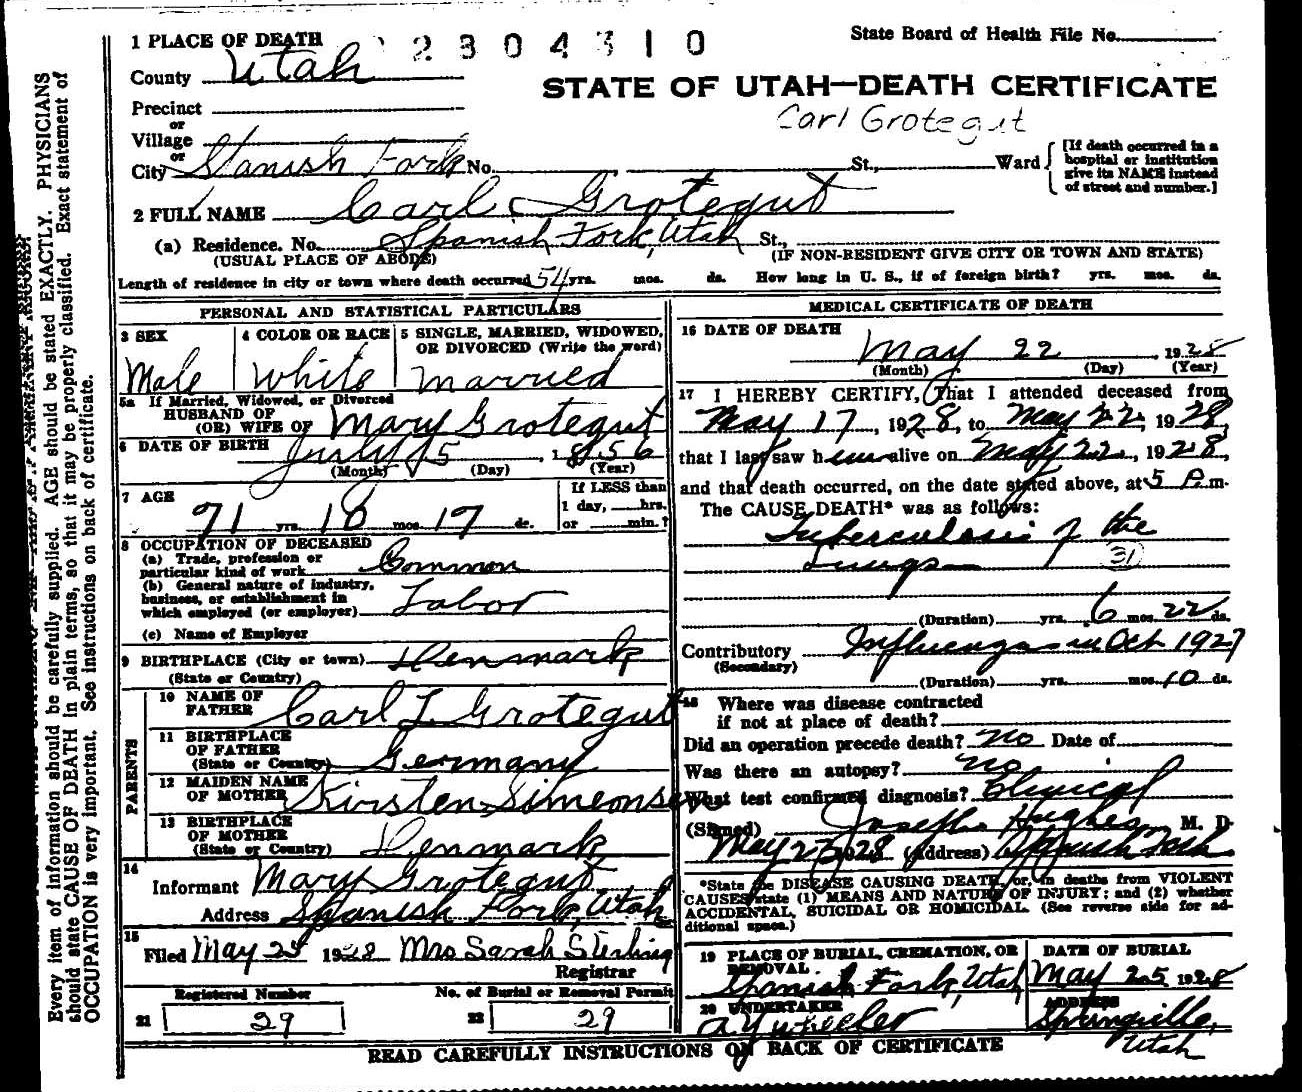 1 PLACE OF DEATH 2304310 State Board of Health File No.
County Utah
STATE OF UTAH—DEATH CERTIFICATE
Precinct
Carl Grotegut
or
Village
or
City Spanish Fork No. St., Ward
[If death occurred in a hospital or institution give its NAME instead of street and number.]
2 FULL NAME Carl Grotegut
(a) Residence. No. Spanish Fork, Utah St.,
(USUAL PLACE OF ABODE) (IF NON-RESIDENT GIVE CITY OR TOWN AND STATE)
Length of residence in city or town where death occurred 54 yrs. mos. ds. How long in U. S., if of foreign birth? yrs. mos. ds.
PERSONAL AND STATISTICAL PARTICULARS
3 SEX
Male
4 COLOR OR RACE
White
5 SINGLE, MARRIED, WIDOWED,
OR DIVORCED (Write the word)
Married
5a If Married, Widowed, or Divorced
HUSBAND OF
(OR) WIFE OF Mary Grotegut
6 DATE OF BIRTH July 5, 1856
(Month) (Day) (Year)
7 AGE
71 yrs. 10 mos. 17 ds.
If LESS than
1 day, hrs.
or min.?
8 OCCUPATION OF DECEASED
(a) Trade, profession or
particular kind of work Common
(b) General nature of industry,
business, or establishment in
which employed (or employer) Labor
(c) Name of Employer
9 BIRTHPLACE (City or town) Denmark
(State or Country)
PARENTS
10 NAME OF
FATHER Carl L Grotegut
11 BIRTHPLACE
OF FATHER
(State or Country) Germany
12 MAIDEN NAME
OF MOTHER Kirsten Simeonsen
13 BIRTHPLACE
OF MOTHER
(State or Country) Denmark
14
Informant Mary Grotegut
Address Spanish Fork, Utah
15
Filed May 25 1928 Mrs Sarah Sterling
Registrar
Registered Number No. of Burial or Removal Permit
21 29 22 29
MEDICAL CERTIFICATE OF DEATH
16 DATE OF DEATH
May 22, 1928
(Month) (Day) (Year)
17 I HEREBY CERTIFY, That I attended deceased from
May 17, 1928, to May 22, 1928,
that I last saw him alive on May 22, 1928,
and that death occurred, on the date stated above, at 5 P m.
The CAUSE DEATH* was as follows:
Tuberculosis of the
Lungs 31
(Duration) yrs. 6 mos. 22 ds.
Contributory Influenza in Oct 1927
(Secondary)
(Duration) yrs. mos. 10 ds.
18 Where was disease contracted
if not at place of death?
Did an operation precede death? No Date of
Was there an autopsy? no
What test confirmed diagnosis? Clinical
(Signed) Joseph Hughes M. D.
May 1928 (Address) Spanish Fork
*State the DISEASE CAUSING DEATH, or, in deaths from VIOLENT
CAUSES, state (1) MEANS AND NATURE OF INJURY; and (2) whether
ACCIDENTAL, SUICIDAL OR HOMICIDAL. (See reverse side for ad-
ditional space.)
19 PLACE OF BURIAL, CREMATION, OR
REMOVAL.
Spanish Fork, Utah
DATE OF BURIAL
May 25 1928
20 UNDERTAKER
A Y Wheeler
ADDRESS
Springville,
Utah
READ CAREFULLY INSTRUCTIONS ON BACK OF CERTIFICATE
Every item of information should be carefully supplied. AGE should be stated EXACTLY. PHYSICIANS
should state CAUSE OF DEATH in plain terms, so that it may be properly classified. Exact statement of
OCCUPATION is very important. See instructions on back of certificate.